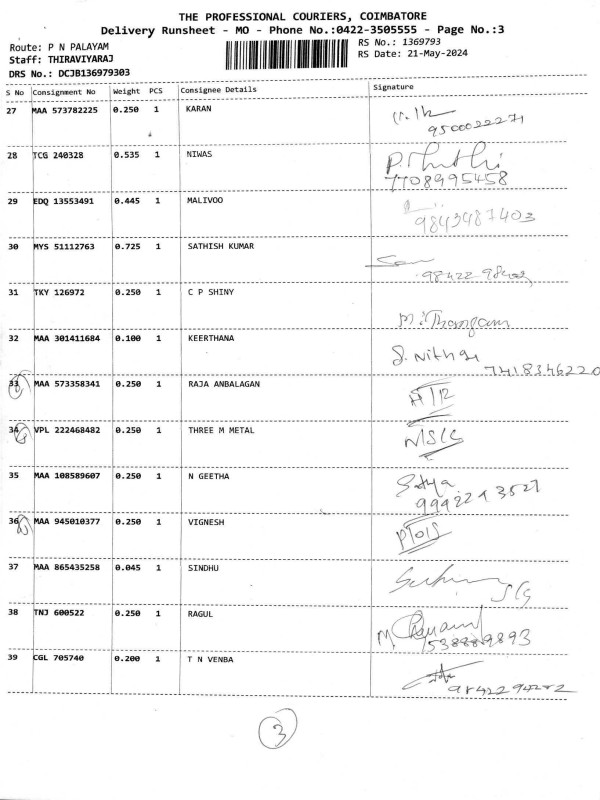 THE PROFESSIONAL COURIERS, COIMBATORE
Delivery Runsheet - MO - Phone No.:0422-3505555 - Page No.:3
Route: P N PALAYAM
RS No.: 1369793
Staff: THIRAVIYARAJ
RS Date: 21-May-2024
DRS No.: DCJB136979303
S No Consignment No Weight PCS Consignee Details Signature
27 MAA 573782225 0.250 1 KARAN
9500022271
28 TCG 240328 0.535 1 NIWAS
7708995458
29 EDQ 13553491 0.445 1 MALIVOO
9843487403
30 MYS 51112763 0.725 1 SATHISH KUMAR
31 TKY 126972 0.250 1 C P SHINY
M. Thangam
32 MAA 301411684 0.100 1 KEERTHANA
7418346220
33 MAA 573358341 0.250 1 RAJA ANBALAGAN
34 VPL 222468482 0.250 1 THREE M METAL
35 MAA 108589607 0.250 1 N GEETHA
Sathya
36 MAA 945010377 0.250 1 VIGNESH
37 MAA 865435258 0.045 1 SINDHU
38 TNJ 600522 0.250 1 RAGUL
39 CGL 705740 0.200 1 T N VENBA
3